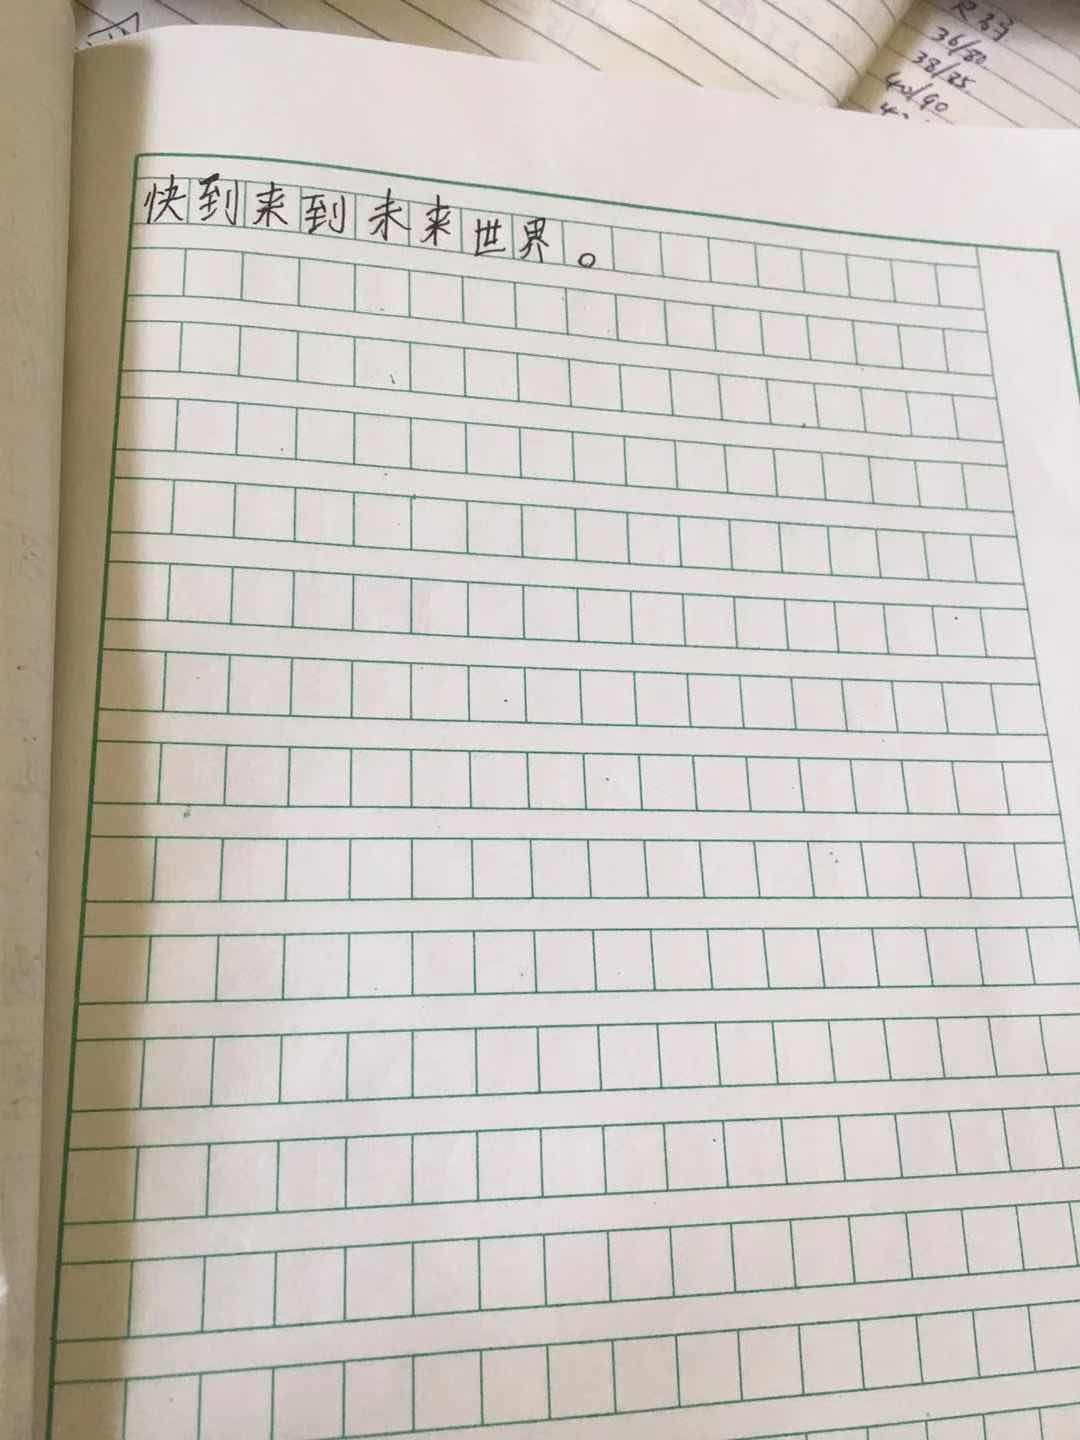 36/80
38/85
40/90
快到来到未来世界。